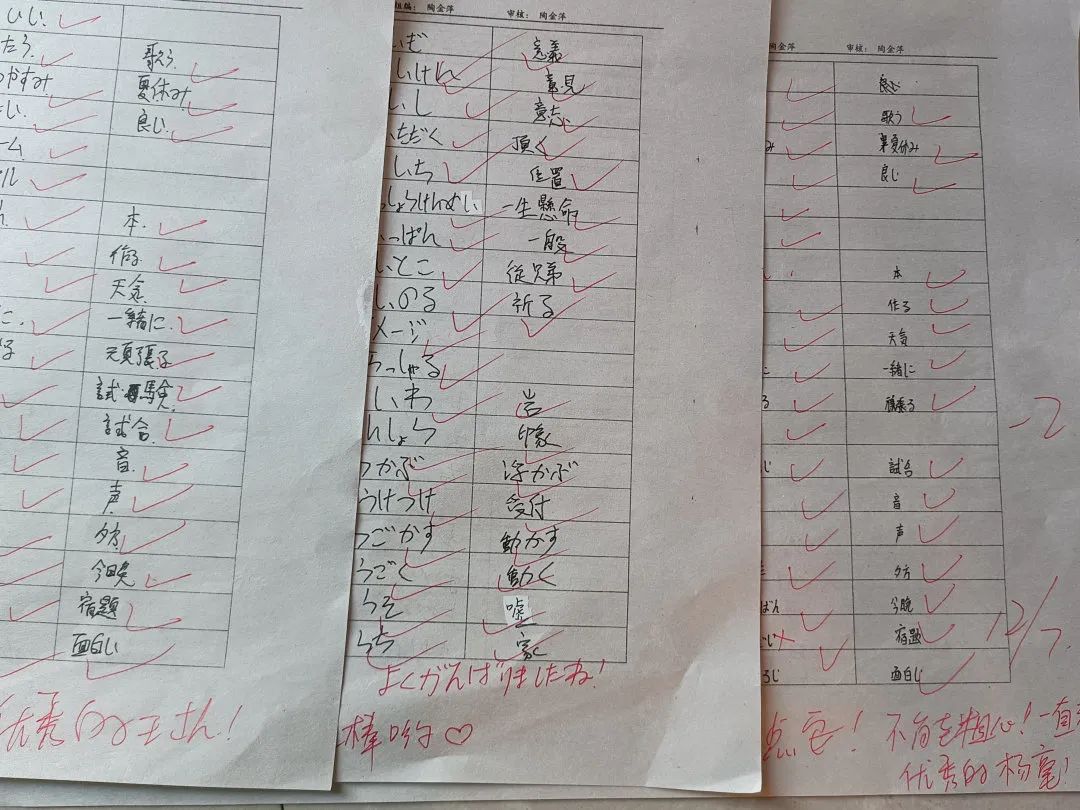 歌う
夏休み
良い
本
作る
天気
一緒に
頑張る
試験
試合
音
声
夕方
今晩
宿題
面白い
优秀的王さん!
组编: 陶金萍 审核: 陶金萍
意義
いけん 意見
いし 意志
いただく 頂く
いち 位置
っしょうけんめい 一生懸命
いっぱん 一般
いとこ 従兄弟
いのる 祈る
メージ
らっしゃる
いわ 岩
んしょう 印象
うかぶ 浮かぶ
うけつけ 受付
うごかす 動かす
うごく 動く
うそ 嘘
うち 家
よくがんばりましたね!
棒哟♡
陶金萍 审核: 陶金萍
良い
歌う
夏休み
良い
本
作る
天気
一緒に
頑張る
試合
音
声
夕方
ばん 今晩
宿題
面白い
-2
12/7
点舌! 不能再粗心!一直
优秀的杨